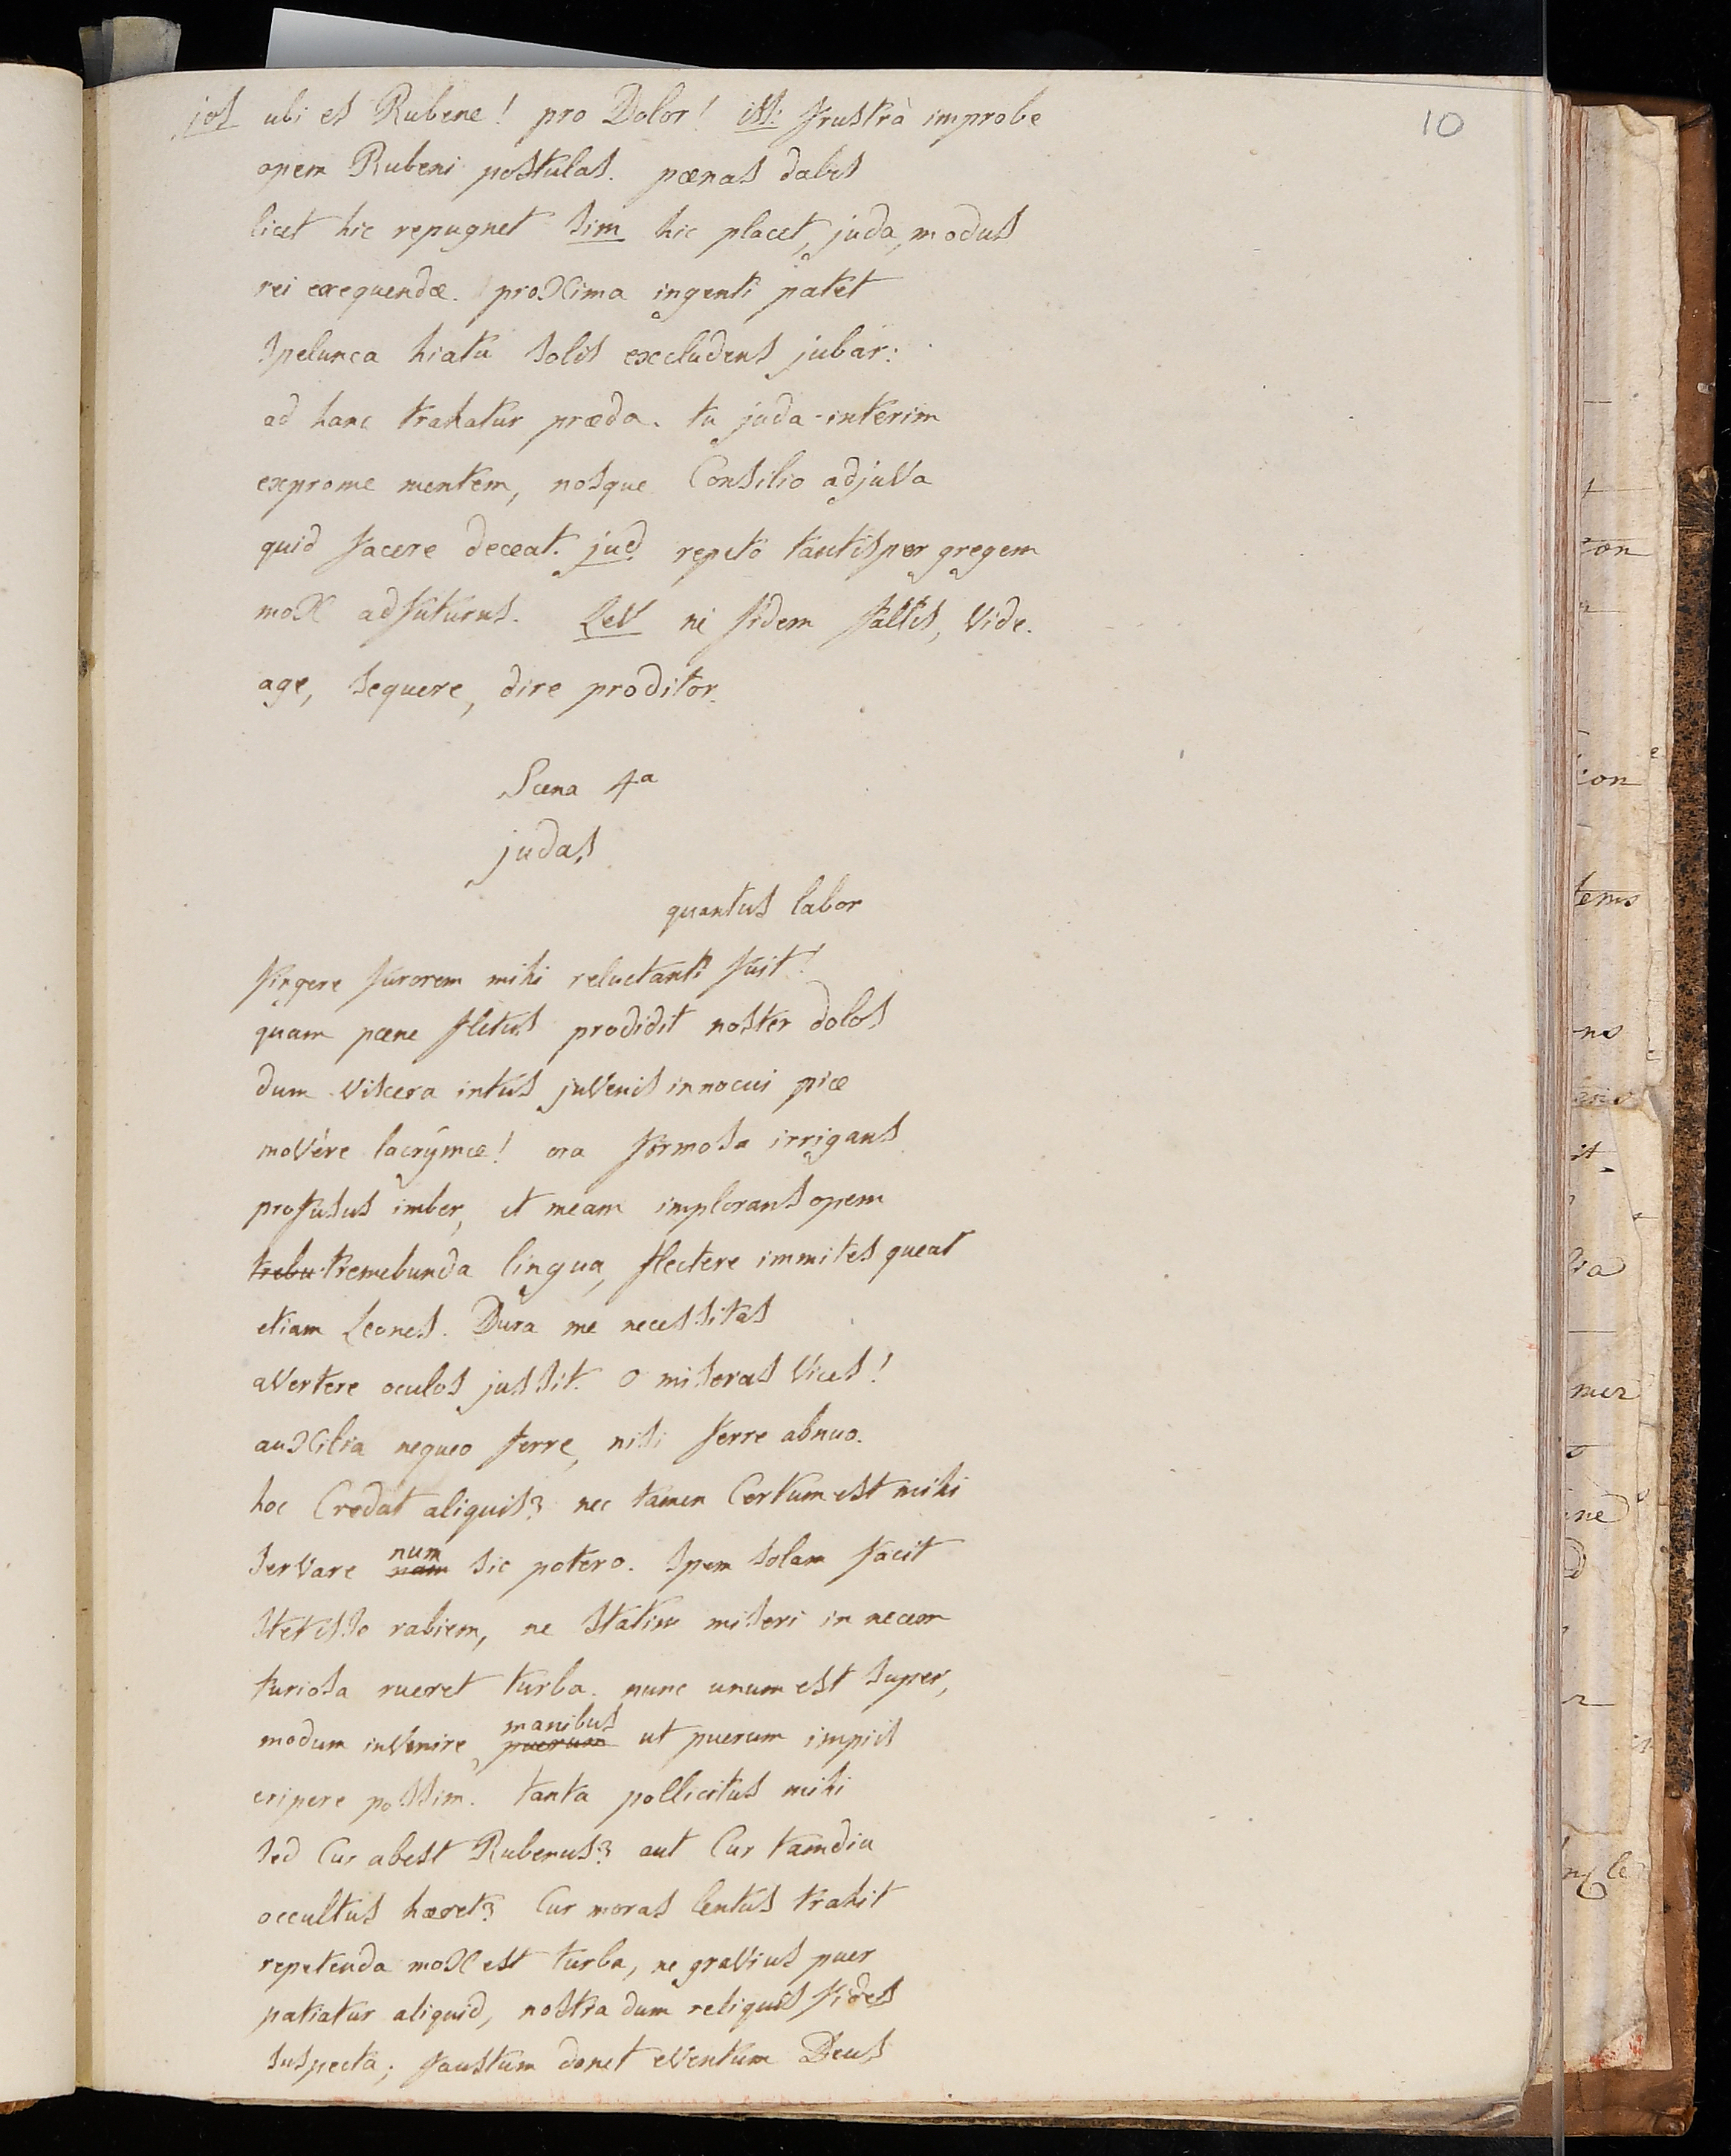 jos ubi es Rubene! pro Dolor! iss: frustrà improbe
10
opem Rubeni postulas. pœnas dabis
licet hic repugnet sim hic placet, juda, modus
rei exequendæ. proxima ingenti patet
spelunca hiatu solis excludens jubar:
ad hanc trahatur præda. tu juda interim
exprome mentem, nosque Consilio adjuva
quid facere deceat. jud repeto tantisper gregem
mox adfuturus. Lev ni fidem fallis, vide.
age, sequere, dire proditor.
Scena 4a
judas
quantus labor
fingere furorem mihi reluctanti fuit!
quam pœne fletus prodidit noster dolos
dum viscera intus juvenis innocui piæ
movêre lacrymæ! ora formosa irrigans
profusus imber, et meam implorans opem
trebu tremebunda lingua, flectere immites queat
etiam Leones. Dura me necessitas
avertere oculos jussit. o miseras vices!
auxilia nequeo ferre, nisi ferre abnuo.
hoc Credat aliquis? nec tamen Certum est mihi
num
servare nam sic potero. spem solam facit
stetisse rabiem, ne statim miseri in necem
furiosa rueret turba. nunc unum est super,
manibus
modum invenire puerum ut puerum impiis
eripere possim. tanta pollicitus mihi
sed Cur abest Rubenus? aut Cur tamdiu
occultus hæret? Cur moras lentus trahit
repetenda mox est turba, ne gravius puer
patiatur aliquid, nostra dum reliquis fides
suspecta; faustum donet eventum Deus